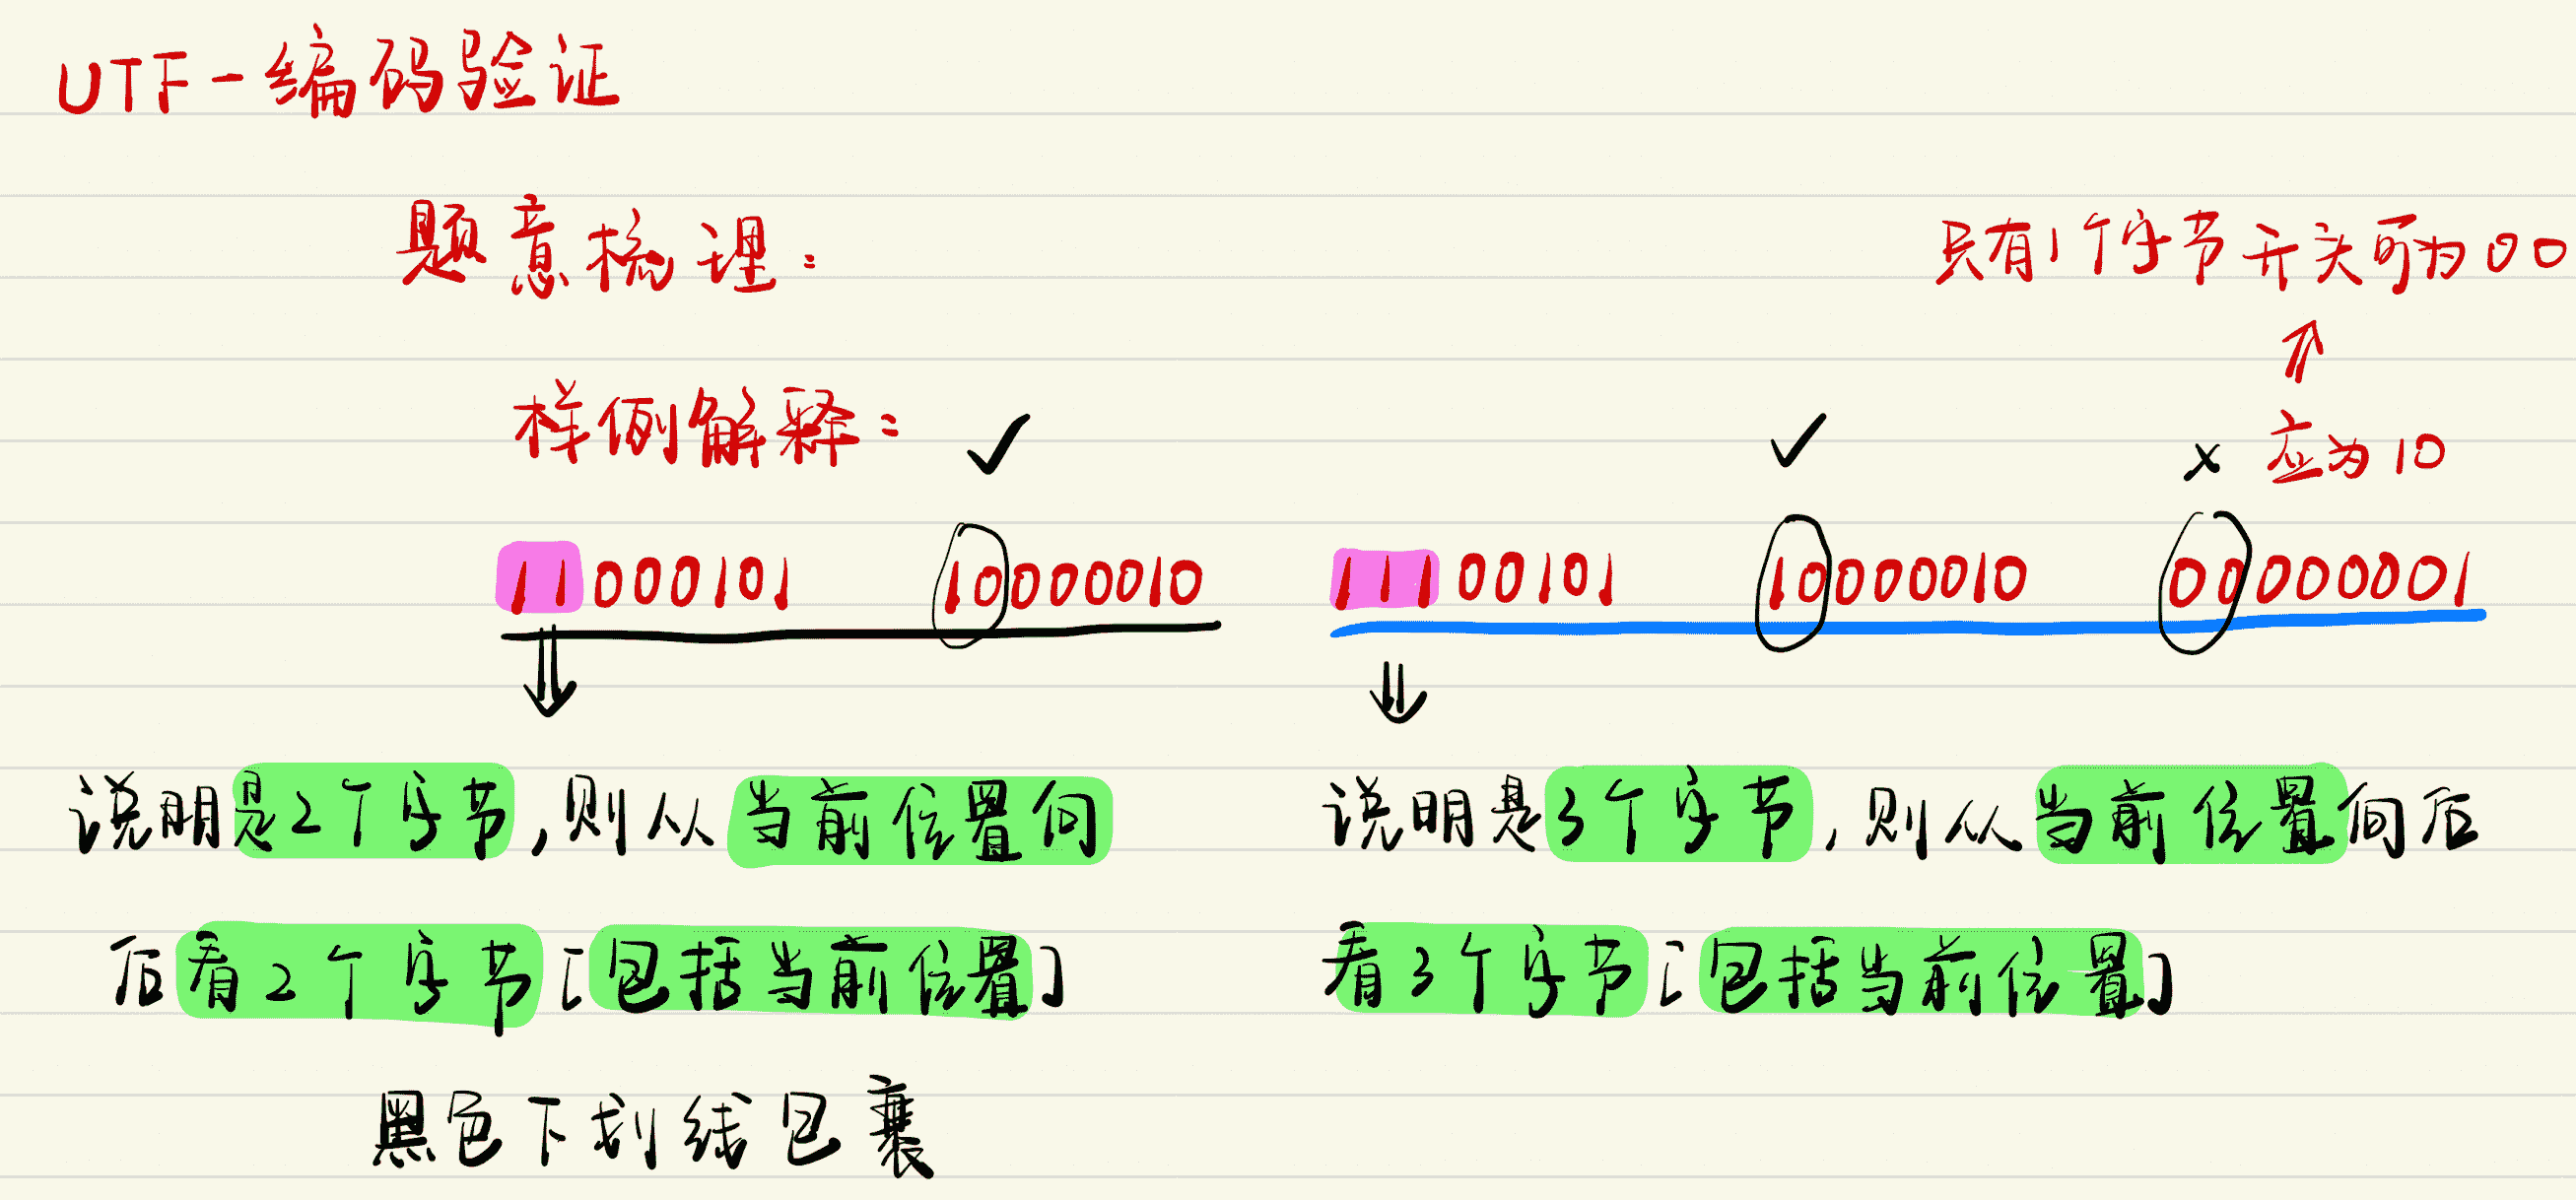 UTF-编码验证
题意梳理:
只有1个字节开头可为00
样例解释:
应为10
11000101 10000010 11100101 10000010 00000001
说明是2个字节,则从当前位置向
后看2个字节[包括当前位置]
黑色下划线包裹
说明是3个字节,则从当前位置向后
看3个字节[包括当前位置]